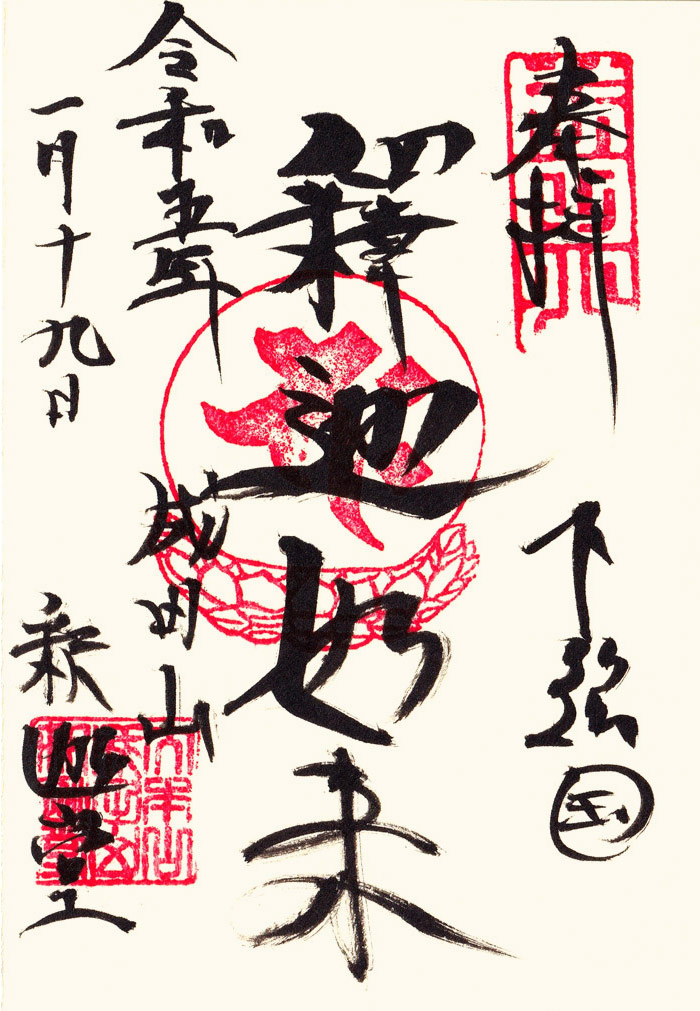 奉拝
下総国
釋迦如来
令和五年
一月十九日
成田山
釈迦堂